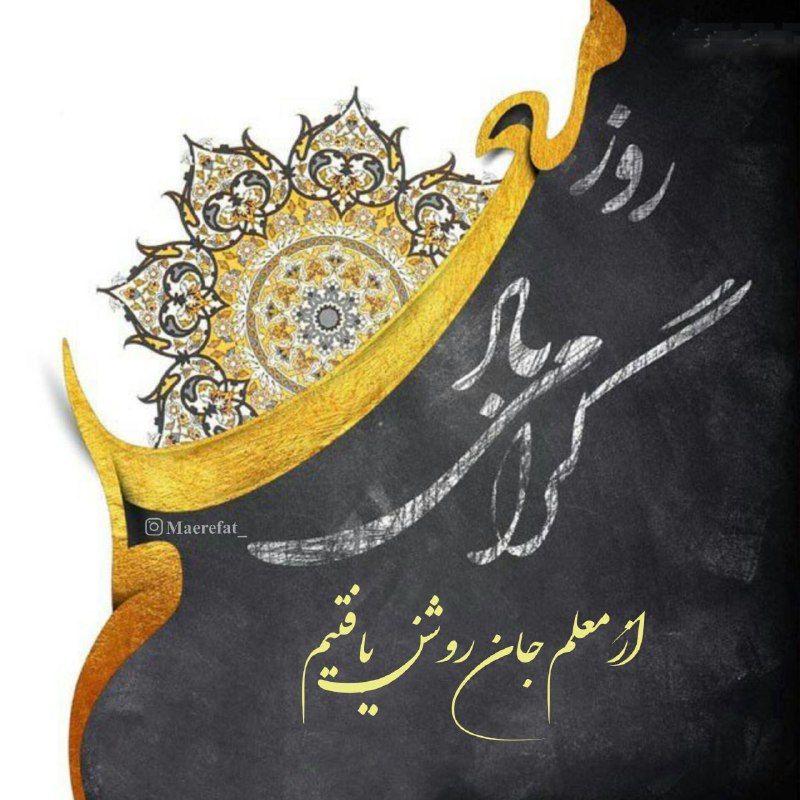 روز
معلم
گرامی باد
Maerefat_
از معلم جان روشن یافتیم